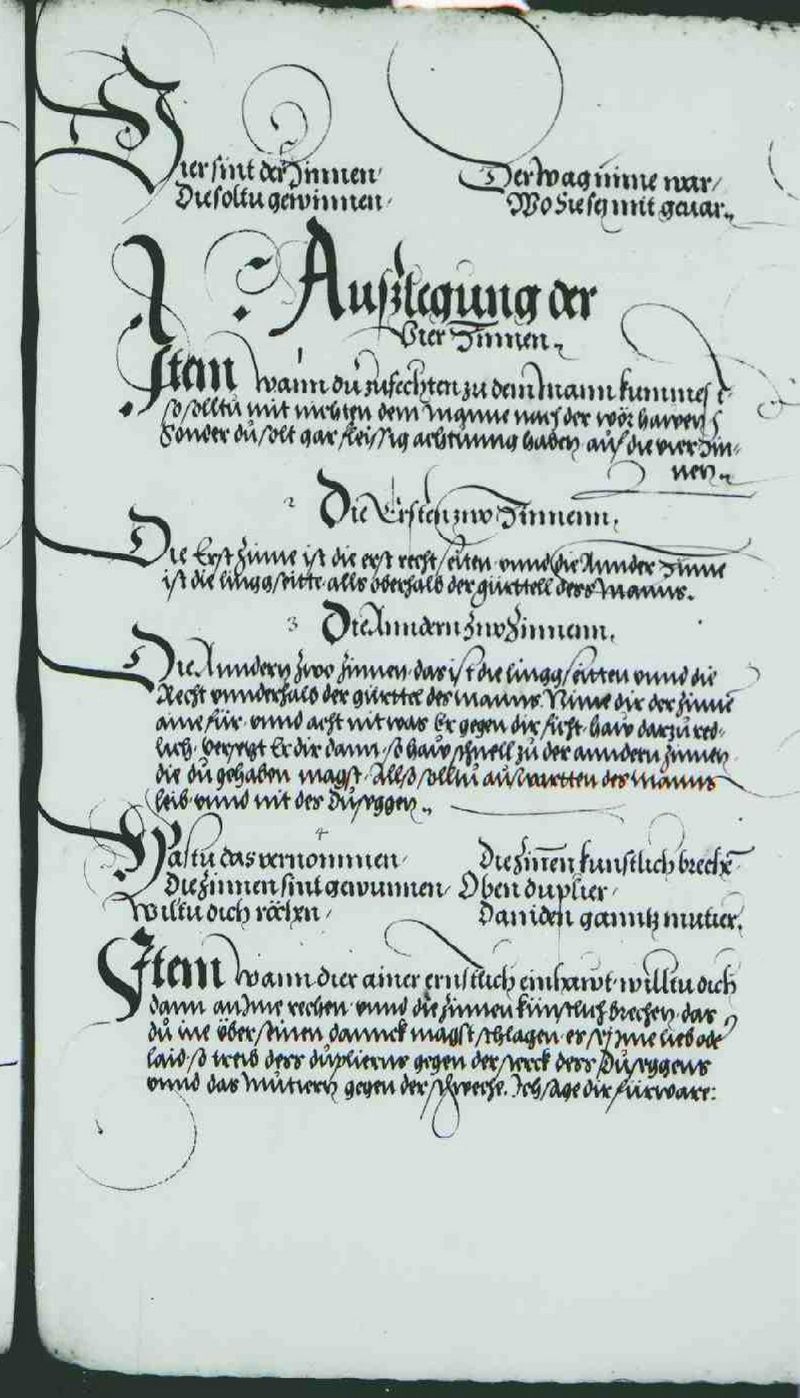 Vier sint der Zinnen
Die soltu gewinnen
Der wag nime war
Wo Sie sey mit gevar
Auszlegung der
Vier Zinnen
1
Item wann du zufechten zu dem Mann kummest
so solltu mit nichten dem Manne nach der wör hawen
Sonder du solt gar fleissig achttung haben auf die vier Zin-
nen
2 Die Ersten zwo Zinnenn,
Die Erst zinne ist die erst recht seiten vnnd die Annder Zinne
ist die lingg seitte alls oberhalb der gürttell dess Manns.
3 Die Anndern zwo Zinnenn,
Die Anndern zwo zinnen das ist die lingg seitten vnnd die
Recht vnnderhalb der gürttel des manns. Nime dir der zinne
aine für vnnd acht nit was Er gegen dir ficht haw darzu red-
lich versetzt Er dir dann so haw schnell zu der anndern zinnen
die du gehaben magst. Allso solltu auswartten des manns
leib vnnd nit des Dusеggen
4
Hastu das vernommen
Die Zinnen sint gewunnen
Wiltu dich röchen
Die Zinnen kunstlich brechen
Oben duplier
Daniden ganntz mutier.
Item wann dier ainer ernstlich einhawt willtu dich
dann an Ime rechen vnnd die zinnen künstlich brechen das
du ine über seinen dannck magst schlagen er sy Ime lieb oder
laid so treib dess duplierns gegen der sterck dess Dusеggens
vnnd das Mutiern gegen der schweche. Ich sage dir fürware: